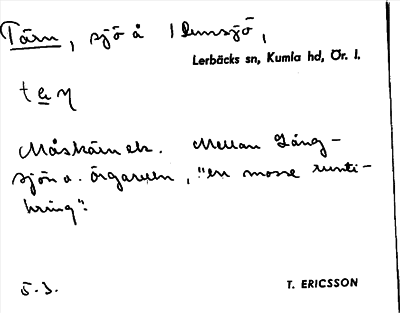 Tärn, sjö å Idensjö,
Lerbäcks sn, Kumla hd, Ör. l.
Måskärn el. Mellan Lång-
sjön o. , "en mosse runti-
kring".
5.3.
T. ERICSSON